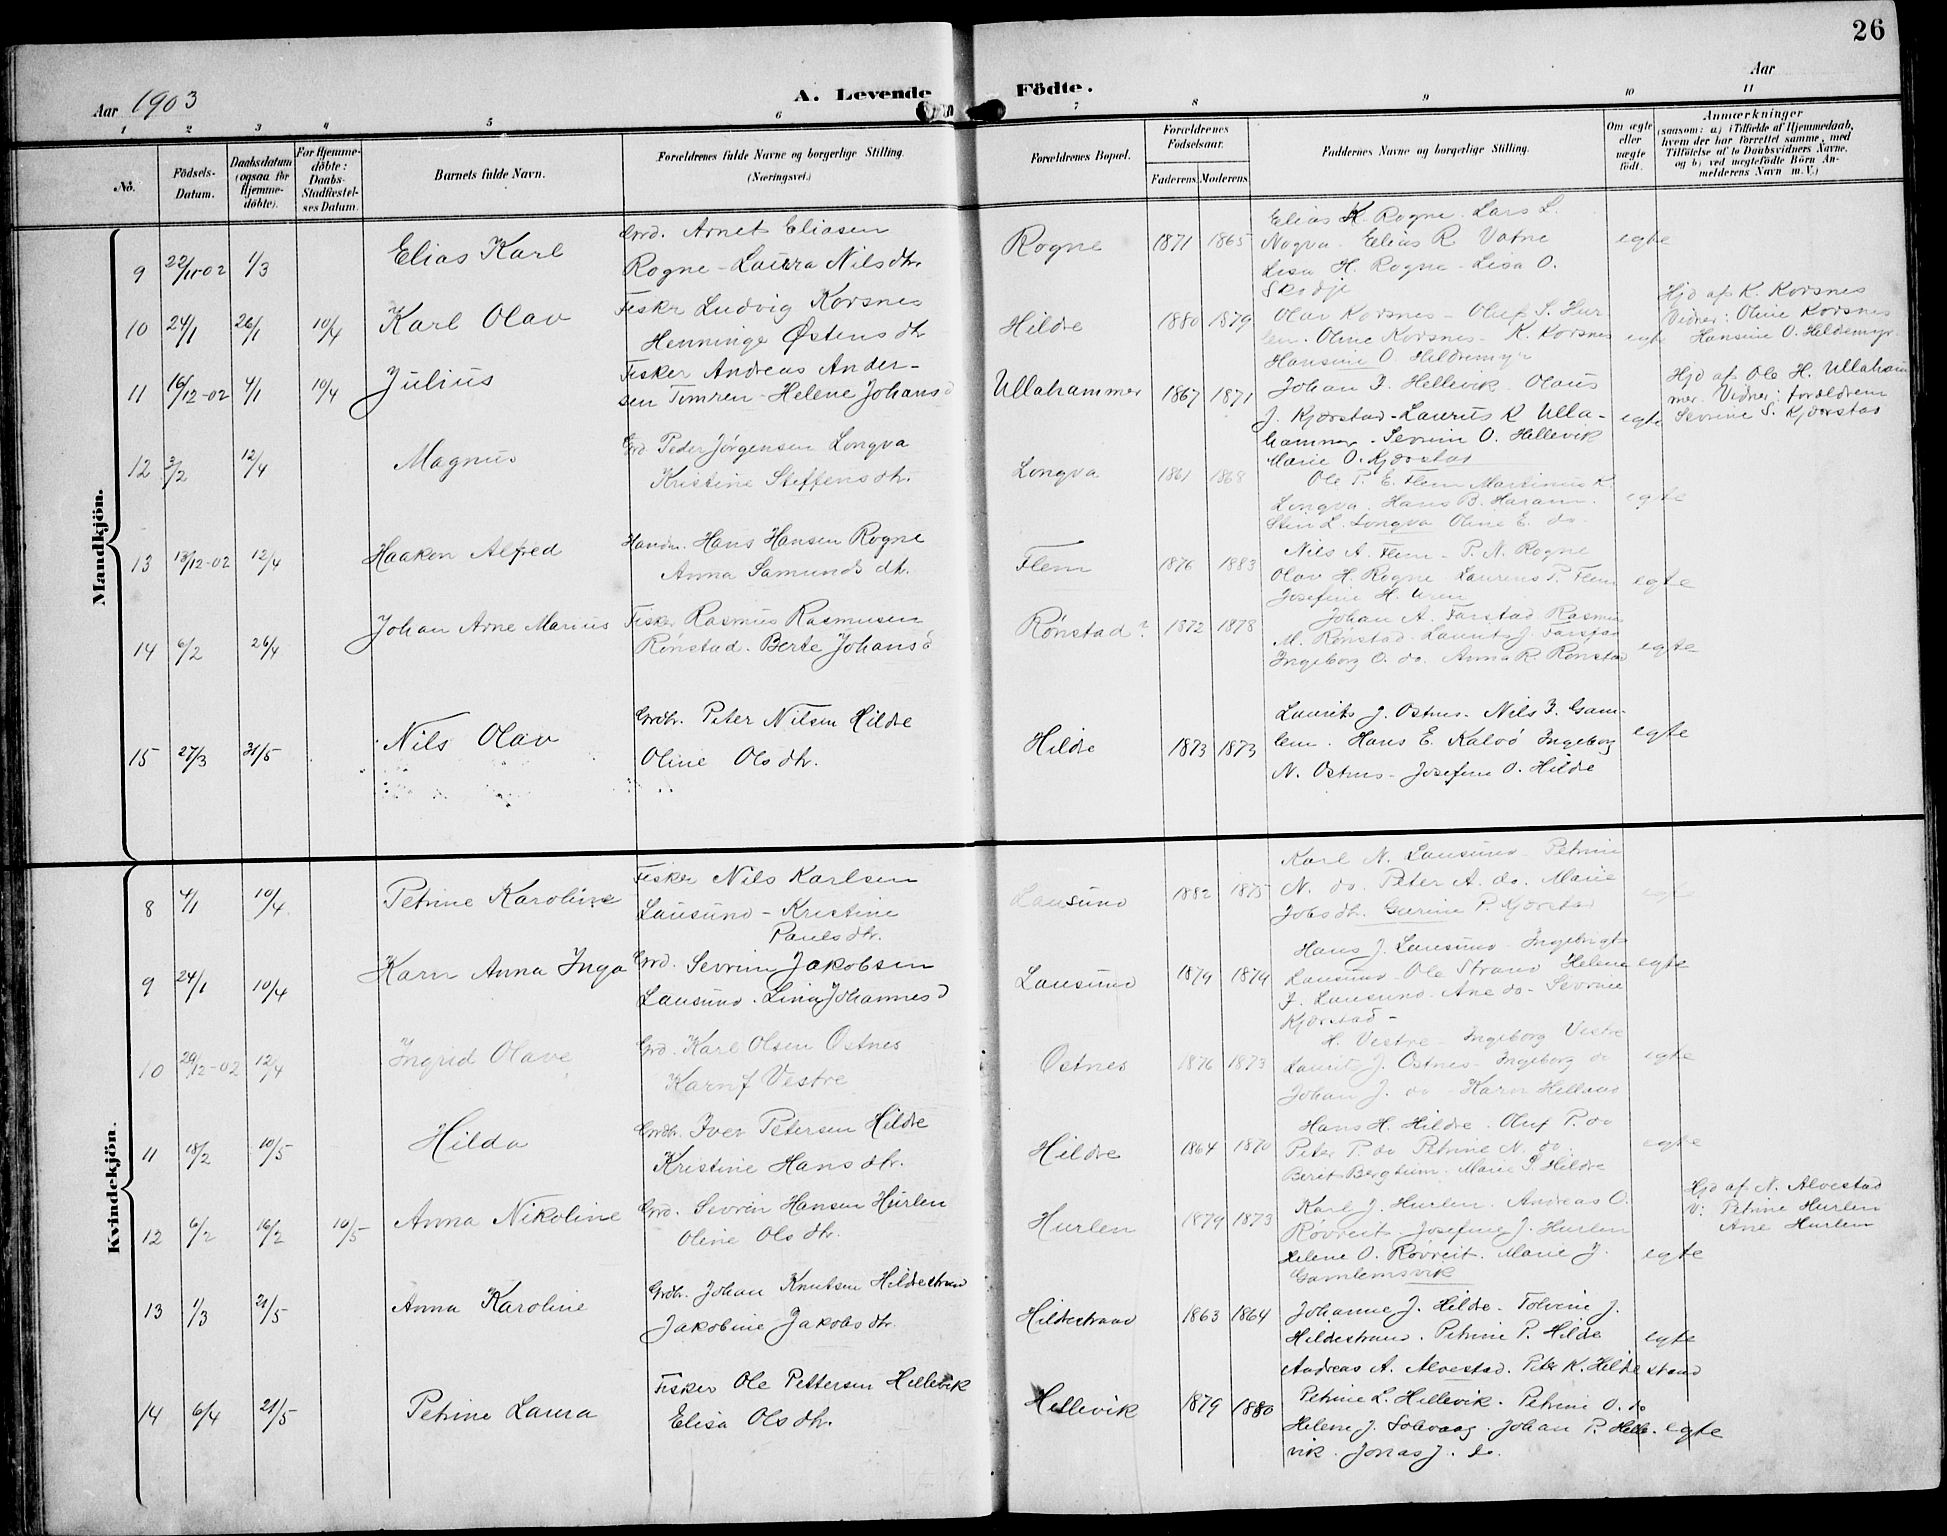 26
Aar 1903
A. Levende Födte.
Aar
1 2 3 4 5 6 7 8 9 10 11
No.
Födsels-Datum.
Daabsdatum (ogsaa for Hjemme-döbte).
For Hjemme-döbte: Daabs-Stadfæstel-ses Datum.
Barnets fulde Navn.
Forældrenes fulde Navne og borgerlige Stilling.
(Næringsvei.)
Forældrenes Bopæl.
Forældrenes Födselsaar.
Faderens. Moderens.
Faddernes Navne og borgerlige Stilling.
Om ægte eller uægte födt.
Anmærkninger
(saasom: a) i Tilfælde af Hjemmedaab, hvem der har forrettet samme, med Tilföielse af to Daabsvidners Navne, og b) ved uægtefödte Börn An-melderens Navn m. V.)
Mandkjön.
9 22/11-02 1/3 Elias Karl
Grd. Arnet Eliasen
Rogne - Laura Nilsdtr.
Rogne 1871 1865
Elias K. Rogne. Lars L.
Nogva. Elias R. Vatne
Lisa H. Rogne. Lisa O.
Skodje
egte
10 24/1 26/1 10/4 Karl Olav
Fiskr Ludvig Korsnes
Henninge Østensdtr
Hildre 1880 1879
Olav Korsnes - Oluf S. Hur
len. Oline Korsnes - K. Korsnes
Hansine O. Hildremyr
egte
Hjd af K. Korsnes
Vidner: Oline Korsnes
Hansine O. Heldemyr
11 16/12-02 4/1 10/4 Julius
Fisker Andreas Ander-
sen Timren - Helene Johansd
Ullahammer 1867 1871
Johan J. Hellevik. Olaus
J. Kjørstad - Laurits K Ulla-
hammer. Sevrin O. Hellevik
Marie O. Kjørstad
egte
Hjd af Ole H. Ullaham
mer. Vidner: forældrene
Sevrine S. Kjørstad
12 3/2 12/4 Magnus
Grd Peder Jørgensen Longva
Kristine Steffensdtr.
Longva 1861 1868
Ole P. E. Flem Martinus K.
Longva. Hans B. Haram.
Stin L. Longva Oline E. do.
egte
13 13/12-02 12/4 Haakon Alfred
Handm. Hans Hansen Rogne
Anna Samundsdtr.
Flem 1876 1883
Nils A. Flem - P. N. Rogne
Olav H. Rogne. Laurens P. Flem
Josefine H. Uren
egte
14 6/2 26/4 Johan Arne Marius
Fisker Rasmus Rasmusen
Rønstad. Berte Johansd
Rønstad? 1872 1878
Johan A. Farstad Rasmus
M. Rønstad. Laurits J. Farstad
Ingeborg O. do. Anna R. Rønstad
egte
15 27/3 31/5 Nils Olav
Grdbr. Peter Nilsen Hildre
Oline Olsdtr.
Hildre 1873 1873
Laurits J. Ostnes. Nils J. Gam-
lem. Hans E. Kalvø Ingeborg
N. Ostnes - Josefine O. Hildre
egte
Kvindekjön.
8 4/1 10/4 Petrine Karoline
Fisker Nils Karlsen
Lausund - Kristine
Paulsdtr.
Lausund 1882 1875
Karl N. Lausund Petrine
N. do. Peter A. do. Marie
Jobsdtr. Gurine P. Kjørstad
egte
9 24/1 10/4 Karn Anna Inga
Grd. Sevrin Jakobsen
Lausund. Lina Johannesd
Lausund 1879 1879
Hans J. Lausund - Ingebrigt
Lausund - Ole Strand Helene
J. Lausund. Ane do - Sevrine
Kjørstad -
egte
10 29/12-02 12/4 Ingrid Olave
Grd. Karl Olsen Ostnes
Karn J Vestre
Ostnes 1876 1873
H. Vestre - Ingeborg Vestre
Laurits J. Ostnes - Ingeborg do
Johan J. do Karn Helland
egte
11 18/2 10/5 Hilda
Grdbr. Iver Petersen Hildre
Kristine Hansdtr.
Hildre 1864 1870
Hans H. Hildre. Oluf P. do
Peter P. do Petrine N. do.
Berit Bergheim. Marie P. Hildre
egte
12 6/2 16/2 10/5 Anna Nikoline
Grd. Sevrin Hansen Hurlen
Oline Olsdtr.
Hurlen 1879 1873
Karl J. Hurlen. Andreas O.
Røvreit. Josefine J. Hurlen
Helene O. Røvreit. Marie J.
Gamlemsvik
egte
Hjd af N. Alvestad
V: Petrine Hurlen
Ane Hurlen
13 1/3 21/5 Anna Karoline
Grdbr. Johan Knutsen Hildrestrand
Jakobine Jakobsdtr.
Hildrestrand 1863 1864
Johanne J. Hildre. Tolvine J.
Hildestrand. Petrine P. Hildre
Andreas A. Alvestad. Petr K. Hildrestrand
egte
14 6/4 21/5 Petrine Laura
Fisker Ole Pettersen Hellevik
Elisa Olsdtr.
Hellevik 1879 1880
Petrine L. Hellevik. Petrine O. do
Helene J. Solvaag. Johan P. Helle
vik. Jonas J. do.
egte